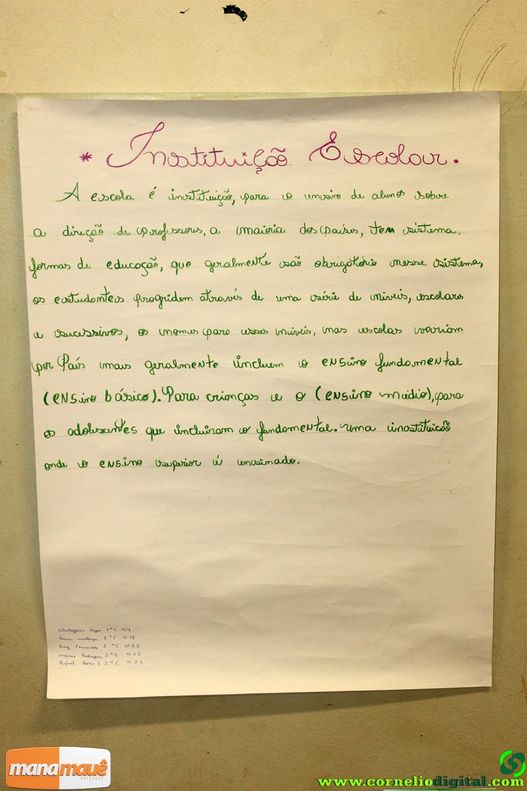 * Instituição Escolar.
A escola é instituição, para o ensino de alunos sobre
a direção de professores, a maioria dos países, tem sistema,
formas de educação, que geralmente são obrigatório nesse sistema,
os estudantes progridem através de uma série de níveis, escolares
e sucessivos, os nomes para esses níveis, nas escolas variam
por País mais geralmente incluem o ensino fundamental
(ensino básico). Para crianças e o (ensino médio), para
os adolescentes que incluiram o fundamental. uma instituição
onde o ensino superior é ensinado.
3º C N4
3º C N 18
3º C
3º C N.23
3º C N.33
manamauê
www.corneliodigital.com